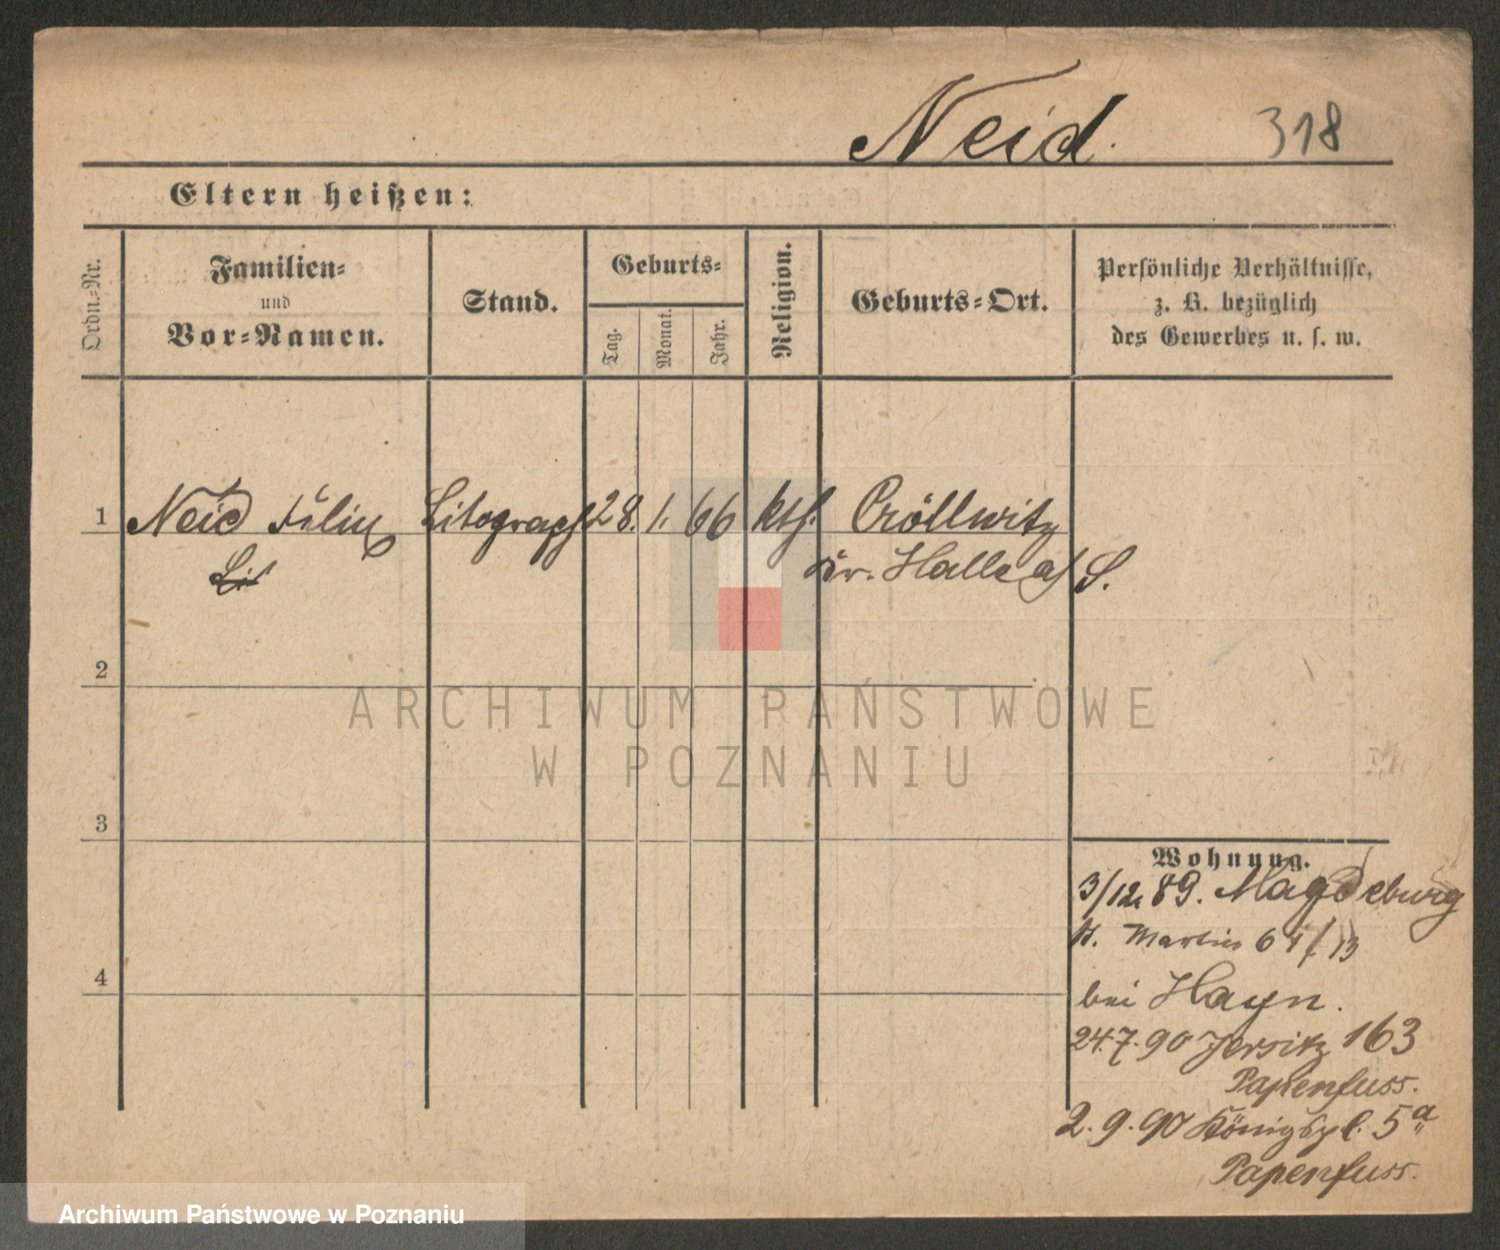 Neid. 318
Eltern heißen:
Ordn.-Nr.
Familien-
und
Vor-Namen.
Stand.
Geburts-
Tag.
Monat.
Jahr.
Religion.
Geburts-Ort.
Persönliche Verhältnisse,
z. B. bezüglich
des Gewerbes u. s. w.
1 Neid Felix Litograph 28. 1. 66 kth. Cröllwitz
Lit Kr. Halle a/S.
2
3
4
Wohnung.
3/12. 89. Magdeburg
St. Martin 64/13
bei Hayn.
24.7.90 Jersitz 163
Papenfuss.
2.9.90 Königspl. 5a
Papenfuss.
ARCHIWUM PAŃSTWOWE
W POZNANIU
Archiwum Państwowe w Poznaniu